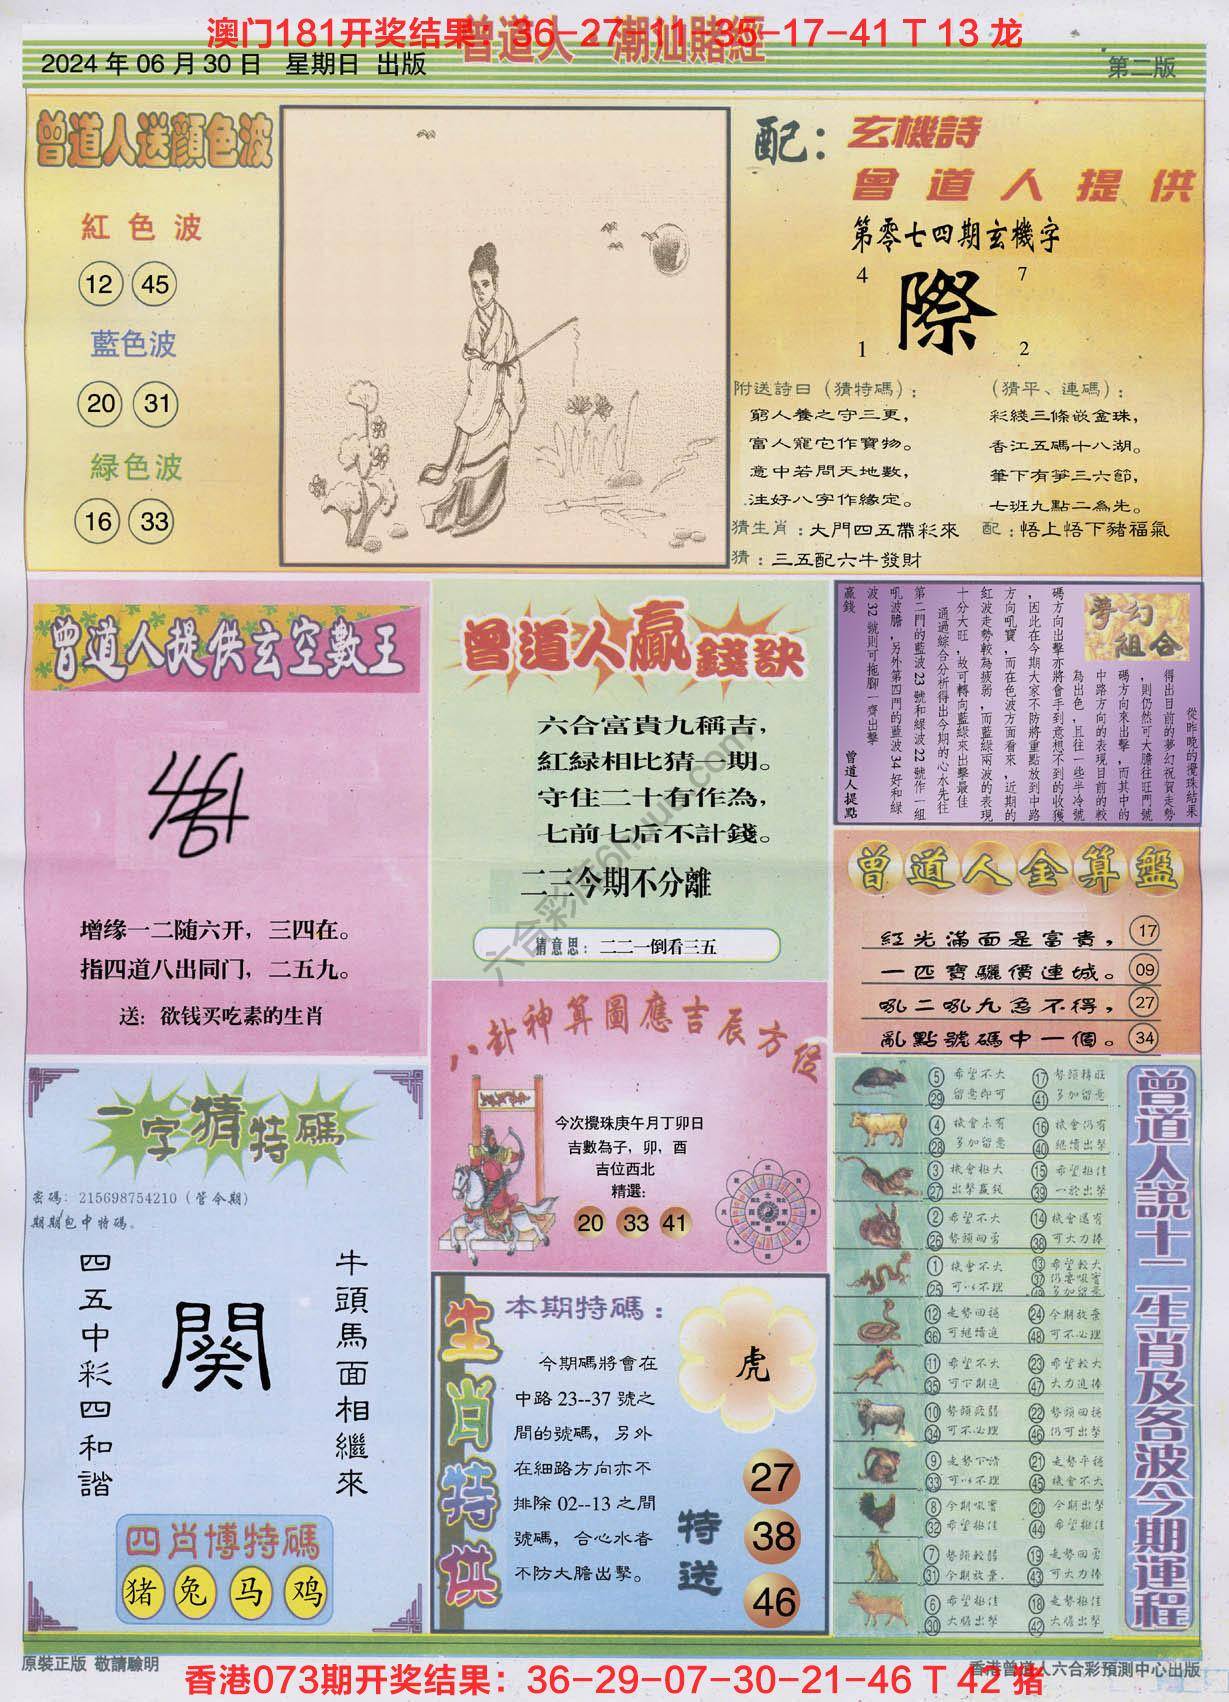 澳门181开奖结果：36-27-11-35-17-41 T 13 龙
曾道人·潮汕賭經
2024 年 06 月 30 日 星期日 出版
第二版
曾道人送顏色波
紅色波
12 45
藍色波
20 31
緑色波
16 33
配：
玄機詩
曾道人提供
第零七四期玄機字
4 7
際
1 2
附送詩曰（猜特碼）：
窮人養之守三更，
富人寵它作寶物。
意中若問天地數，
注好八字作緣定。
（猜平、連碼）：
彩綫三條嵌金珠，
香江五碼十八湖。
筆下有笋三六節，
七班九點二為先。
猜生肖：大門四五帶彩來
配：悟上悟下豬福氣
猜：三五配六牛發財
曾道人提供玄空數王
增缘一二随六开，三四在。
指四道八出同门，二五九。
送：欲钱买吃素的生肖
曾道人贏錢訣
六合富貴九稱吉，
紅緑相比猜一期。
守住二十有作為，
七前七后不計錢。
二三今期不分離
猜意思：二二一倒看三五
夢幻組合
從昨晚的攪珠結果
得出目前的夢幻祝賀走勢
，則仍然可大膽往旺門號
碼方向來出擊，而其中的
中路方向的表現目前的較
為出色，且往一些半冷號
碼方向出擊亦將會手到意想不到的收獲
，因此在今期大家不防將重點放到中路
方向吼寶，而在色波方面看來，近期的
紅波走勢較為疲弱，而藍綠兩波的表現
十分大旺，故可轉向藍綠來出擊最佳
通過綜合分析得出今期的心水先往
第二門的藍波23號和綠波22號作一組
吼波膽，另外第四門的藍波34好和綠
波32號則可拖腳一齊出擊
贏錢
曾道人提點
曾道人金算盤
紅光滿面是富貴， 17
一匹寶驪價連城。 09
吼二吼九急不得， 27
亂點號碼中一個。 34
八卦神算圖應吉辰方位
今次攪珠庚午月丁卯日
吉數為子，卯，酉
吉位西北
精選：
20 33 41
一字猜特碼
密碼：215698754210（管令期）
期期包中特碼。
牛頭馬面相繼來
闋
四五中彩四和諧
四肖博特碼
猪 兔 马 鸡
生肖特供
本期特碼：
虎
今期碼將會在
中路 23--37 號之
間的號碼，另外
在細路方向亦不
排除 02--13 之間
號碼，合心水者
不防大膽出擊。
特送
27
38
46
曾道人説十二生肖及各波今期運程
5 希望不大 17 勢頭轉旺
29 留意即可 41 多加留意
4 機會未有 16 機會仍有
28 多加留意 40 繼續出擊
3 機會極大 15 希望極佳
27 出擊贏錢 39 一於出擊
2 希望不大 14 機會還有
26 勢頭回勇 38 可大力捧
1 機會不大 13 希望較大
25 可以不理
12 走勢回穩 24 今期放棄
36 可繼續追 48 可不必理
11 希望不大 23 希望較大
35 可下期追 47 大力追捧
10 勢頭疲弱 22 勢頭回穩
34 可不必理 46 仍可出擊
9 走勢下滑 21 走勢平穩
33 可以不理 45 機會不大
8 今期吼實 20 今期出擊
32 希望極佳 44 希望極佳
7 勢頭較弱 19 走勢回勇
31 今期放棄 43 可大力捧
6 希望極佳 18 走勢極佳
30 大膽出擊 42 大膽出擊
原裝正版 敬請驗明
香港曾道人六合彩預測中心出版
香港073期开奖结果：36-29-07-30-21-46 T 42 猪